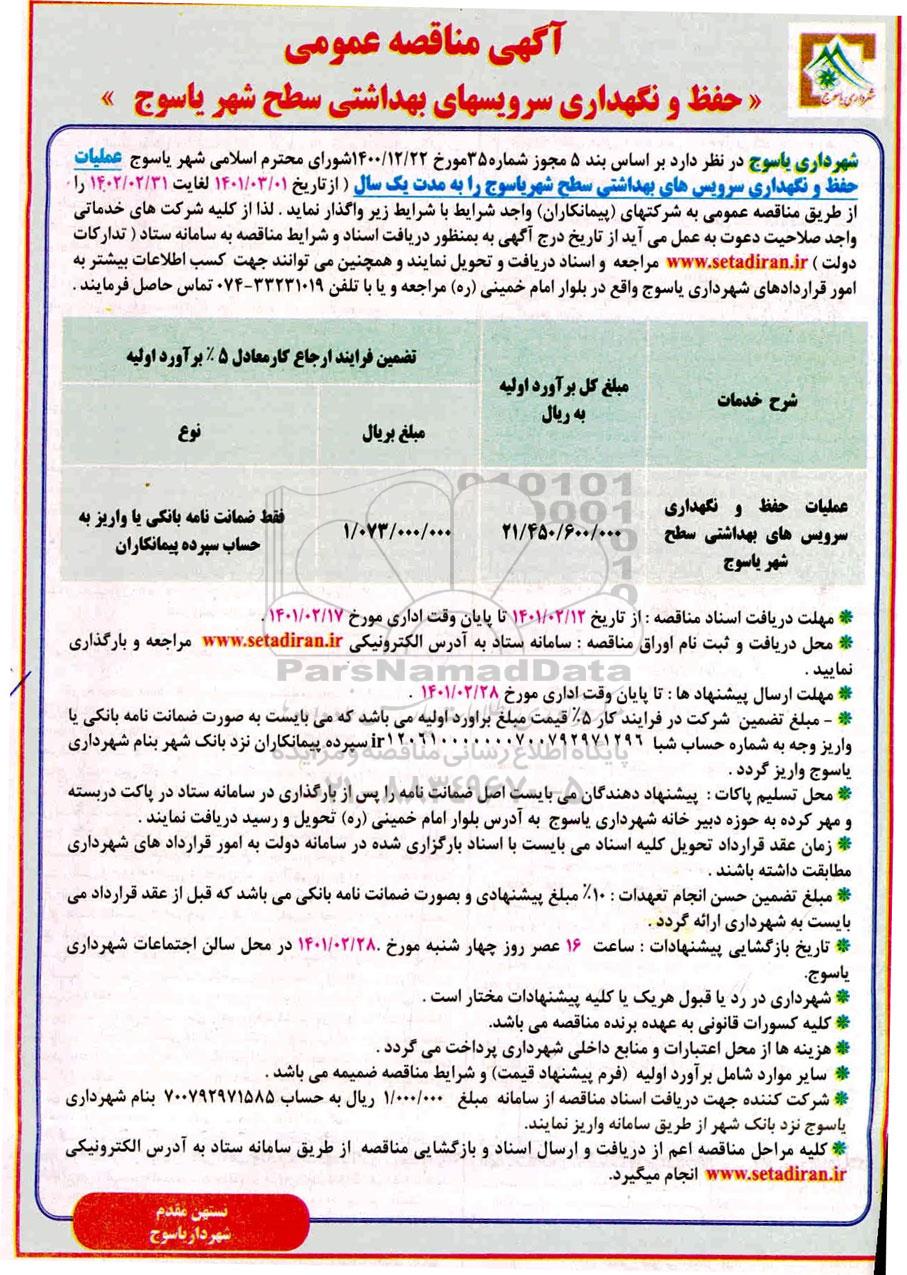 آگهی مناقصه عمومی
« حفظ و نگهداری سرویسهای بهداشتی سطح شهر یاسوج »
شهرداری یاسوج
شهرداری یاسوج در نظر دارد بر اساس بند ۵ مجوز شماره۳۵مورخ ۱۴۰۰/۱۲/۲۲شورای محترم اسلامی شهر یاسوج عملیات
حفظ و نگهداری سرویس های بهداشتی سطح شهریاسوج را به مدت یک سال ( ازتاریخ ۱۴۰۱/۰۳/۰۱ لغایت ۱۴۰۲/۰۲/۳۱ را
از طریق مناقصه عمومی به شرکتهای (پیمانکاران) واجد شرایط با شرایط زیر واگذار نماید . لذا از کلیه شرکت های خدماتی
واجد صلاحیت دعوت به عمل می آید از تاریخ درج آگهی به بمنظور دریافت اسناد و شرایط مناقصه به سامانه ستاد ( تدارکات
دولت ) www.setadiran.ir مراجعه و اسناد دریافت و تحویل نمایند و همچنین می توانند جهت کسب اطلاعات بیشتر به
امور قراردادهای شهرداری یاسوج واقع در بلوار امام خمینی (ره) مراجعه و یا با تلفن ۳۳۲۳۱۰۱۹-۰۷۴ تماس حاصل فرمایند .
شرح خدمات
مبلغ کل برآورد اولیه
به ریال
تضمین فرایند ارجاع کارمعادل ۵ ٪ برآورد اولیه
مبلغ بریال
نوع
عملیات حفظ و نگهداری
سرویس های بهداشتی سطح
شهر یاسوج
۲۱/۴۵۰/۶۰۰/۰۰۰
۱/۰۷۳/۰۰۰/۰۰۰
فقط ضمانت نامه بانکی یا واریز به
حساب سپرده پیمانکاران
مهلت دریافت اسناد مناقصه : از تاریخ ۱۴۰۱/۰۲/۱۲ تا پایان وقت اداری مورخ ۱۴۰۱/۰۲/۱۷ .
محل دریافت و ثبت نام اوراق مناقصه : سامانه ستاد به آدرس الکترونیکی www.setadiran.ir مراجعه و بارگذاری
نمایید .
ParsNamadData
مهلت ارسال پیشنهاد ها : تا پایان وقت اداری مورخ ۱۴۰۱/۰۲/۲۸ .
– مبلغ تضمین شرکت در فرایند کار ۵٪ قیمت مبلغ براورد اولیه می باشد که می بایست به صورت ضمانت نامه بانکی یا
واریز وجه به شماره حساب شبا ir۱۲۰۶۱۰۰۰۰۰۰۰۷۰۰۷۹۲۹۷۱۲۹۶ سپرده پیمانکاران نزد بانک شهر بنام شهرداری
پایگاه اطلاع رسانی مناقصه و مزایده
یاسوج واریز گردد .
۰۲۱-۸۸۳۴۹۶۷۰-۵
محل تسلیم پاکات : پیشنهاد دهندگان می بایست اصل ضمانت نامه را پس از بارگذاری در سامانه ستاد در پاکت دربسته
و مهر کرده به حوزه دبیر خانه شهرداری یاسوج به آدرس بلوار امام خمینی (ره) تحویل و رسید دریافت نمایند .
زمان عقد قرارداد تحویل کلیه اسناد می بایست با اسناد بارگزاری شده در سامانه دولت به امور قرارداد های شهرداری
مطابقت داشته باشند .
مبلغ تضمین حسن انجام تعهدات : ۱۰٪ مبلغ پیشنهادی و بصورت ضمانت نامه بانکی می باشد که قبل از عقد قرارداد می
بایست به شهرداری ارائه گردد .
تاریخ بازگشایی پیشنهادات : ساعت ۱۶ عصر روز چهار شنبه مورخ ۱۴۰۱/۰۲/۲۸. در محل سالن اجتماعات شهرداری
یاسوج.
شهرداری در رد یا قبول هریک یا کلیه پیشنهادات مختار است .
کلیه کسورات قانونی به عهده برنده مناقصه می باشد.
هزینه ها از محل اعتبارات و منابع داخلی شهرداری پرداخت می گردد .
سایر موارد شامل برآورد اولیه (فرم پیشنهاد قیمت) و شرایط مناقصه ضمیمه می باشد .
شرکت کننده جهت دریافت اسناد مناقصه از سامانه مبلغ ۱/۰۰۰/۰۰۰ ریال به حساب ۷۰۰۷۹۲۹۷۱۵۸۵ بنام شهرداری
یاسوج نزد بانک شهر از طریق سامانه واریز نمایند.
کلیه مراحل مناقصه اعم از دریافت و ارسال اسناد و بازگشایی مناقصه از طریق سامانه ستاد به آدرس الکترونیکی
www.setadiran.ir انجام میگیرد.
نستهن مقدم
شهردار یاسوج